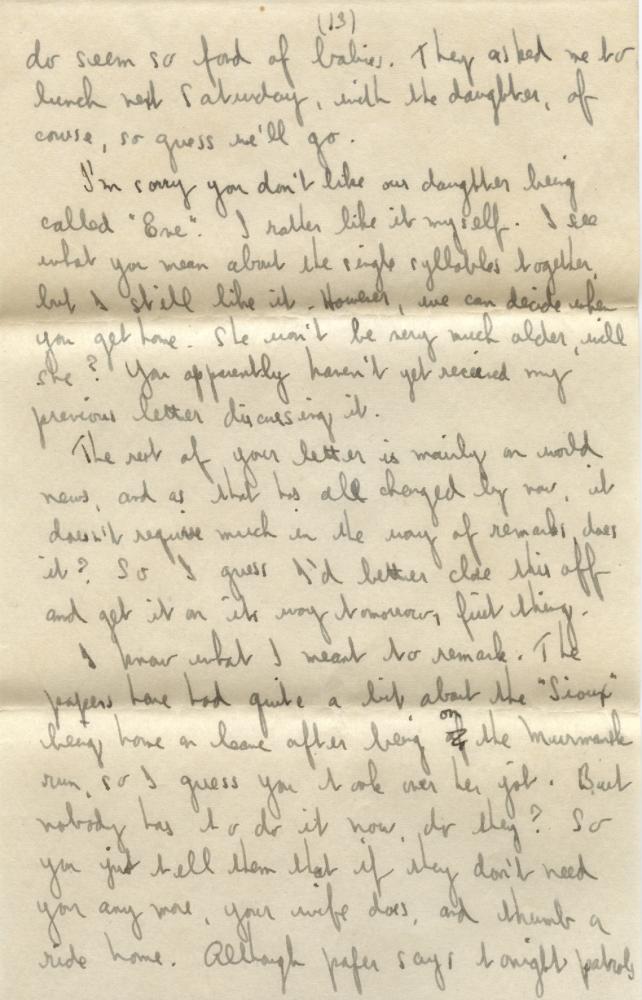 (13)
do seem so fond of babies. They asked me to
lunch next Saturday, with the daughter, of
course, so guess we'll go.
I'm sorry you don't like our daughter being
called "Eve". I rather like it myself. I see
what you mean about the single syllables together,
but I still like it. However, we can decide when
you get home. She won't be very much older, will
she? You apparently haven't yet received my
previous letter discussing it.
The rest of your letter is mainly on world
news, and as that has all changed by now, it
doesn't require much in the way of remarks, does
it? So I guess I'd better close this off
and get it on its way tomorrow, first thing.
I know what I meant to remark. The
papers have had quite a bit about the "Sioux"
being home on leave after being on the Murmansk
run, so I guess you took over her job. But
nobody has to do it now, do they? So
you just tell them that if they don't need
you any more, your wife does, and thumb a
ride home. Although paper says tonight patrols